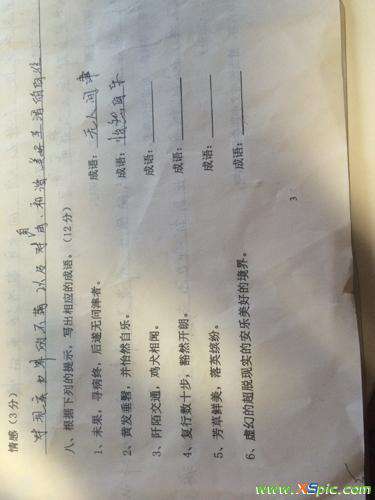 情感（3分）
对现实世界的不满以及对自由和谐美好生活的向往
八、根据下列的提示，写出相应的成语。（12分）
1、未果，寻病终，后遂无问津者。 成语：无人问津
2、黄发垂髫，并怡然自乐。 成语：怡然自乐
3、阡陌交通，鸡犬相闻。 成语：
4、复行数十步，豁然开朗。 成语：
5、芳草鲜美，落英缤纷。 成语：
6、虚幻的超脱现实的安乐美好的境界。 成语：
3
www.XSpic.com